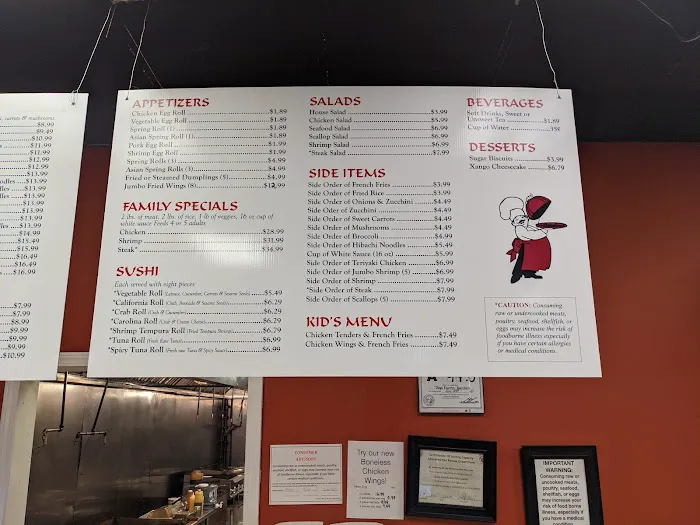 t, carrots & mushrooms
$8.99
$9.49
$10.99
$11.99
$11.99
$12.99
$12.99
$13.99
$13.99
$13.99
$13.99
$13.99
$13.99
$14.99
$15.49
$15.99
$16.49
$16.49
$16.99
$7.99
$7.99
$8.99
$9.99
$9.99
$9.99
$10.99
APPETIZERS
Chicken Egg Roll $1.89
Vegetable Egg Roll $1.89
Spring Roll (1) $1.89
Asian Spring Roll (1) $1.89
Pork Egg Roll $1.99
Shrimp Egg Roll $1.99
Spring Rolls (3) $4.99
Asian Spring Rolls (3) $4.99
Fried or Steamed Dumplings (5) $4.99
Jumbo Fried Wings (8) $12.99
FAMILY SPECIALS
2 lbs. of meat, 2 lbs. of rice, 1 lb of veggies, 16 oz cup of
white sauce Feeds 4 or 5 adults
Chicken $28.99
Shrimp $31.99
Steak* $34.99
SUSHI
Each served with eight pieces
*Vegetable Roll (Lettuce, Cucumber, Carrots & Sesame Seeds) $5.49
*California Roll (Crab, Avocado & Sesame Seeds) $6.29
*Crab Roll (Crab & Cucumber) $6.29
*Carolina Roll (Crab & Cream Cheese) $6.29
*Shrimp Tempura Roll (Fried Tempura Shrimp) $6.79
*Tuna Roll (Fresh Raw Tuna) $6.99
*Spicy Tuna Roll (Fresh raw Tuna & Spicy Sauce) $6.99
SALADS
House Salad $3.99
Chicken Salad $5.99
Seafood Salad $6.99
Scallop Salad $6.99
Shrimp Salad $6.99
*Steak Salad $7.99
SIDE ITEMS
Side Order of French Fries $3.99
Side Order of Fried Rice $3.99
Side Order of Onions & Zucchini $4.49
Side Oder of Zucchini $4.49
Side Order of Sweet Carrots $4.49
Side Order of Mushrooms $4.49
Side Order of Broccoli $4.99
Side Order of Hibachi Noodles $5.49
Cup of White Sauce (16 oz) $5.99
Side Order of Teriyaki Chicken $6.99
Side Order of Jumbo Shrimp (5) $6.99
Side Order of Shrimp $7.99
*Side Order of Steak $7.99
Side Order of Scallops (5) $7.99
KID'S MENU
Chicken Tenders & French Fries $7.49
Chicken Wings & French Fries $7.49
BEVERAGES
Soft Drinks, Sweet or
Unsweet Tea $1.89
Cup of Water 35¢
DESSERTS
Sugar Biscuits $3.99
Xango Cheesecake $6.79
*CAUTION: Consuming
raw or undercooked meats,
poultry, seafood, shellfish, or
eggs may increase the risk of
foodborne illness especially
if you have certain allergies
or medical conditions.
CONSUMER
ADVISORY
Try our new
Boneless
Chicken
Wings!
IMPORTANT
WARNING:
Consuming raw or
uncooked meats,
poultry, seafood,
shellfish, or eggs
may increase your
risk of food borne
illness, especially if
you have a medical